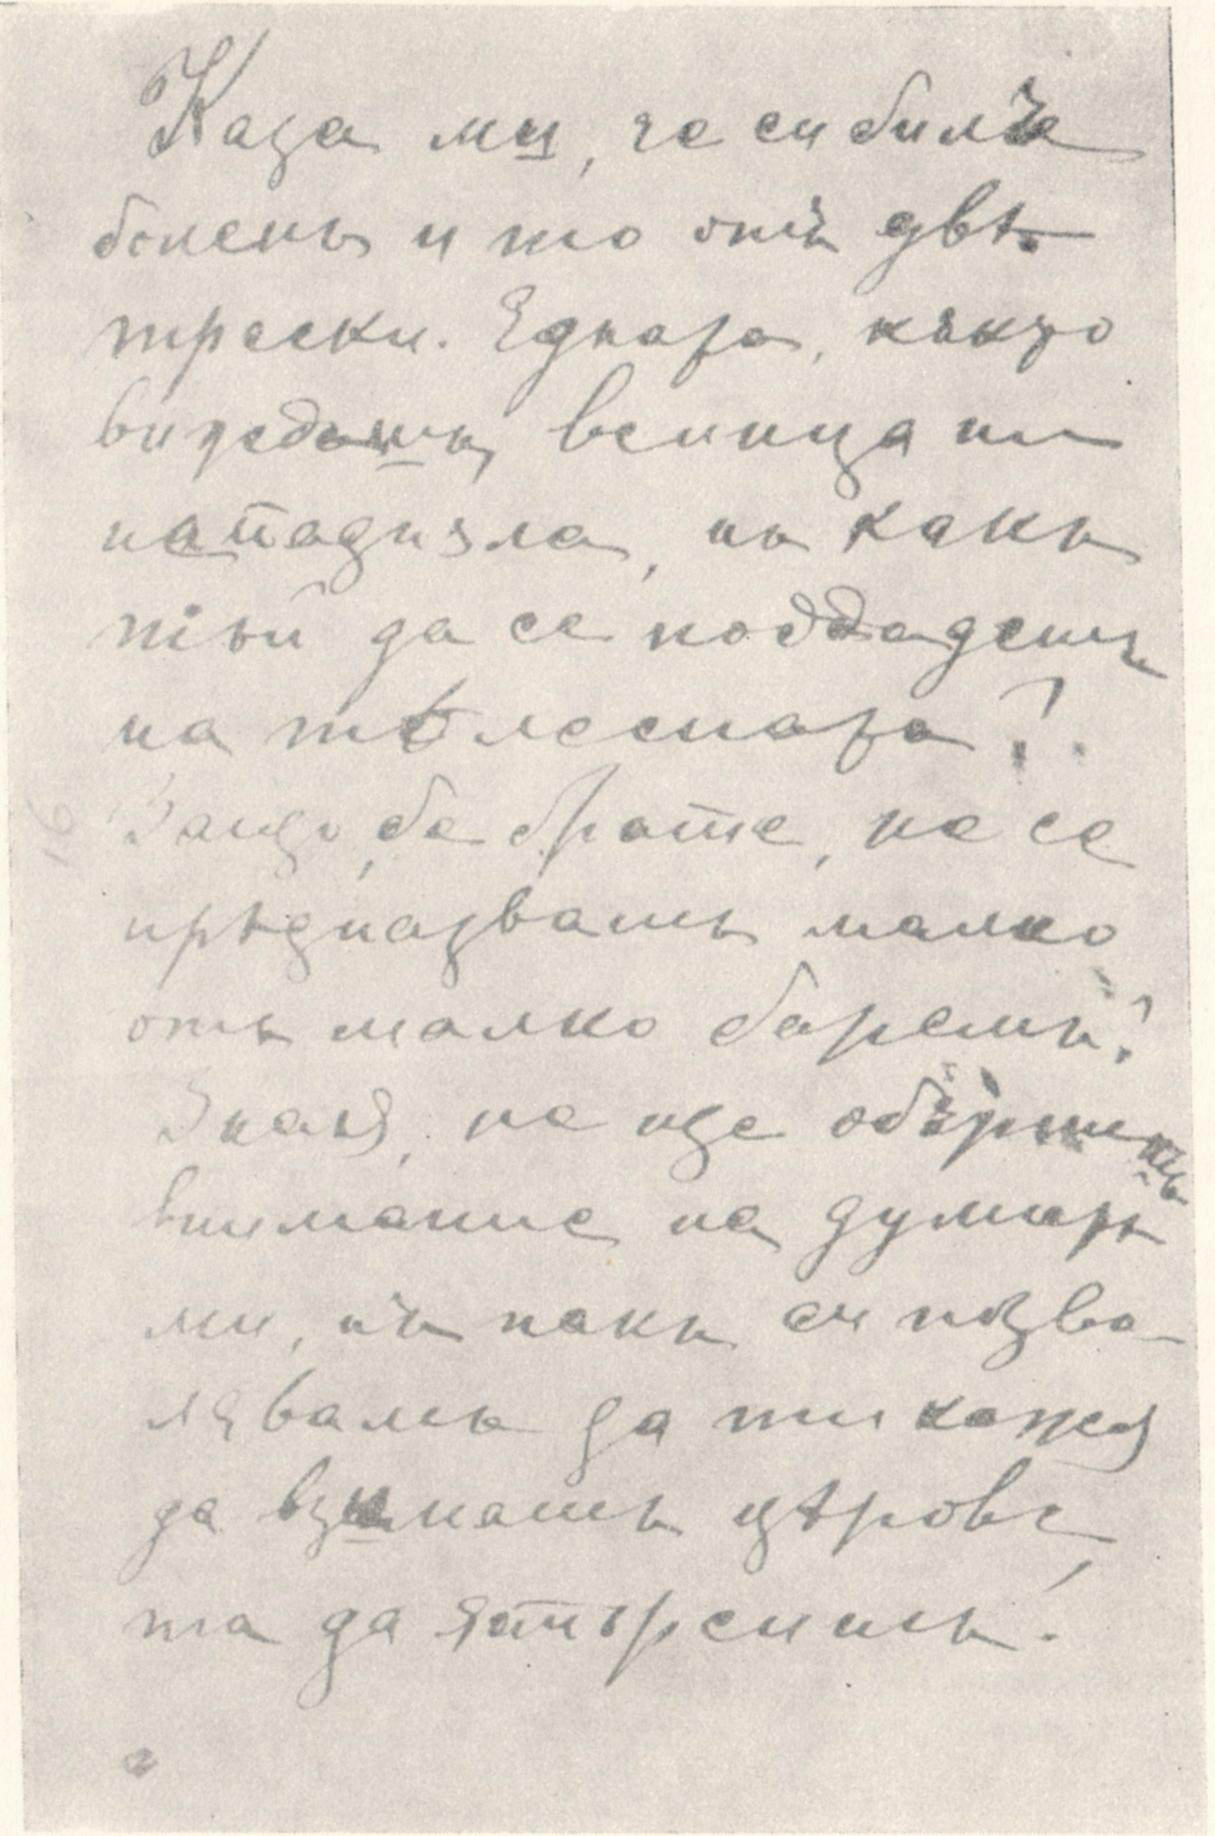 Каза ми, че си билъ
боленъ и то отъ двѣ
трески. Едната, както
виждамъ, всинца ни
нападнала, нъ какъ
тъй да се поддадешъ
на тѣлесната?
Защо, бе брате, не се
прѣдпазвашъ малко
отъ малко баремъ?
Зная, не ще обърнешъ
внимание на думитѣ
ми, нъ пакъ си позво-
лявамъ да ти кажѫ
да взимашъ цѣрове,
та да